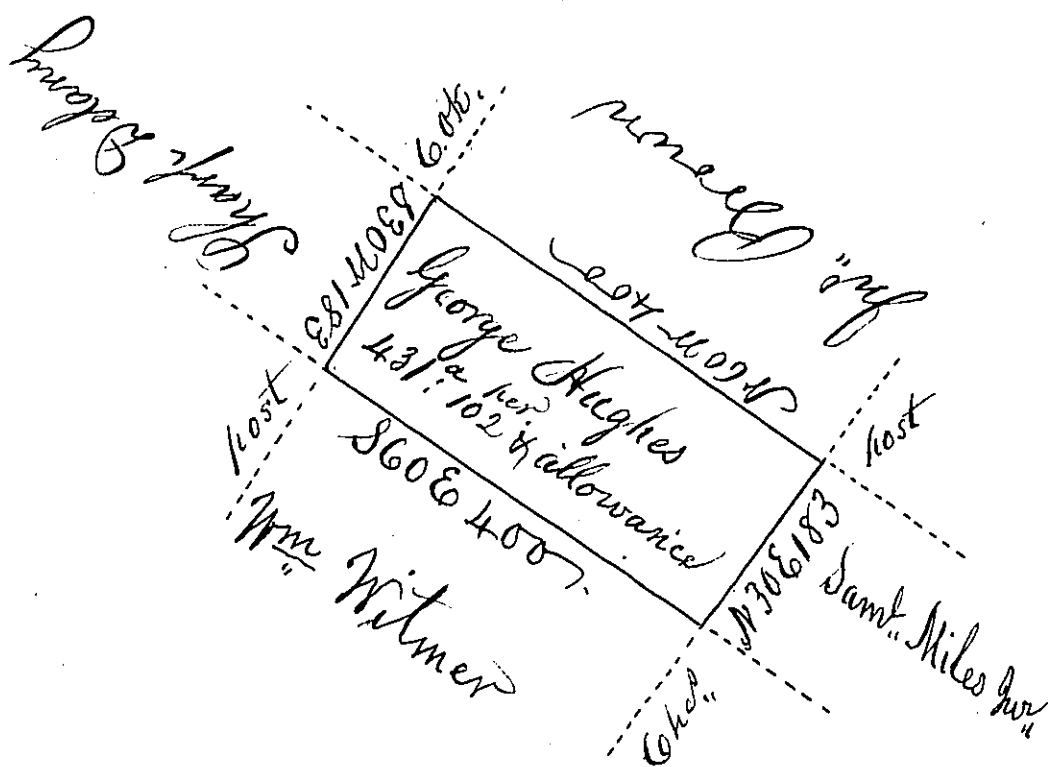 Sharpe Delany
C. ok.
Jno" Brown
S30W 183
N60W 400
George Hughes
431a: 102 per & allowance
post
post
S60E 400
N30E 183
Wm" Witmer
Saml" Miles Jur"
Chs"